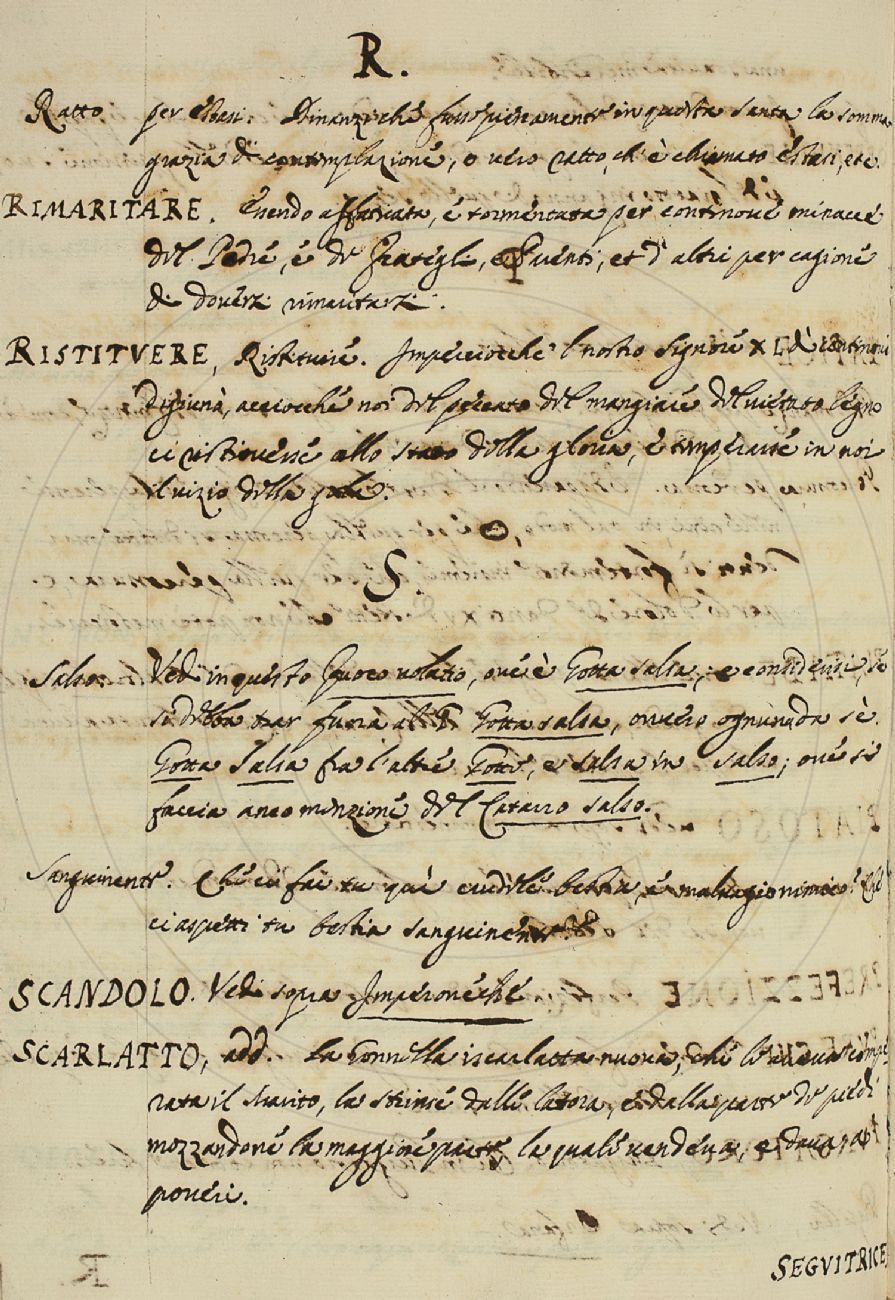 R.
Ratto per estasi. Dinanzi che fusse pienamente in questa santa la somma
grazia di contemplazione, o vero ratto, ch'è chiamato estasi, etc.
RIMARITARE. Essendo affaticata, e tormentata per continove minacce
del Padre, e de' Frategli, e Parenti, et d'altri per cagione
di doversi rimaritarsi.
RISTITVERE, Ristituire. Imperciocchè 'l nostro Signore X
digiunà, acciocchè noi del peccato del mangiare del vietato legno
ci ristituesse allo stato della gloria, e temperasse in noi
il vizio della gola.
S.
Salso. Vedi in questo Fuoco volatio, ove è Gotta salsa, e considerisi, se
si debba trar fuora al G. Gotta salsa, ovvero ognuna da sè.
Gotta Salsa fra l'altre Gotte, e salsa in salso; ove si
faccia anco menzione del Catarro salso.
Sanguinente. Che ci fai tu quà crudele bestia, e malvagio nimico? Che
ci aspetti tu bestia sanguinente?
SCANDOLO. Vedi sopra Imperoneche
SCARLATTO, add. La Gonnella iscarlatta nuova, che le aveva compe-
rata il Marito, la strinse dalle latora, e dalla parte de' piedi
mozzandone la maggiore parte la quale vendeva, e dava a'
poveri.
SEGVITRICE